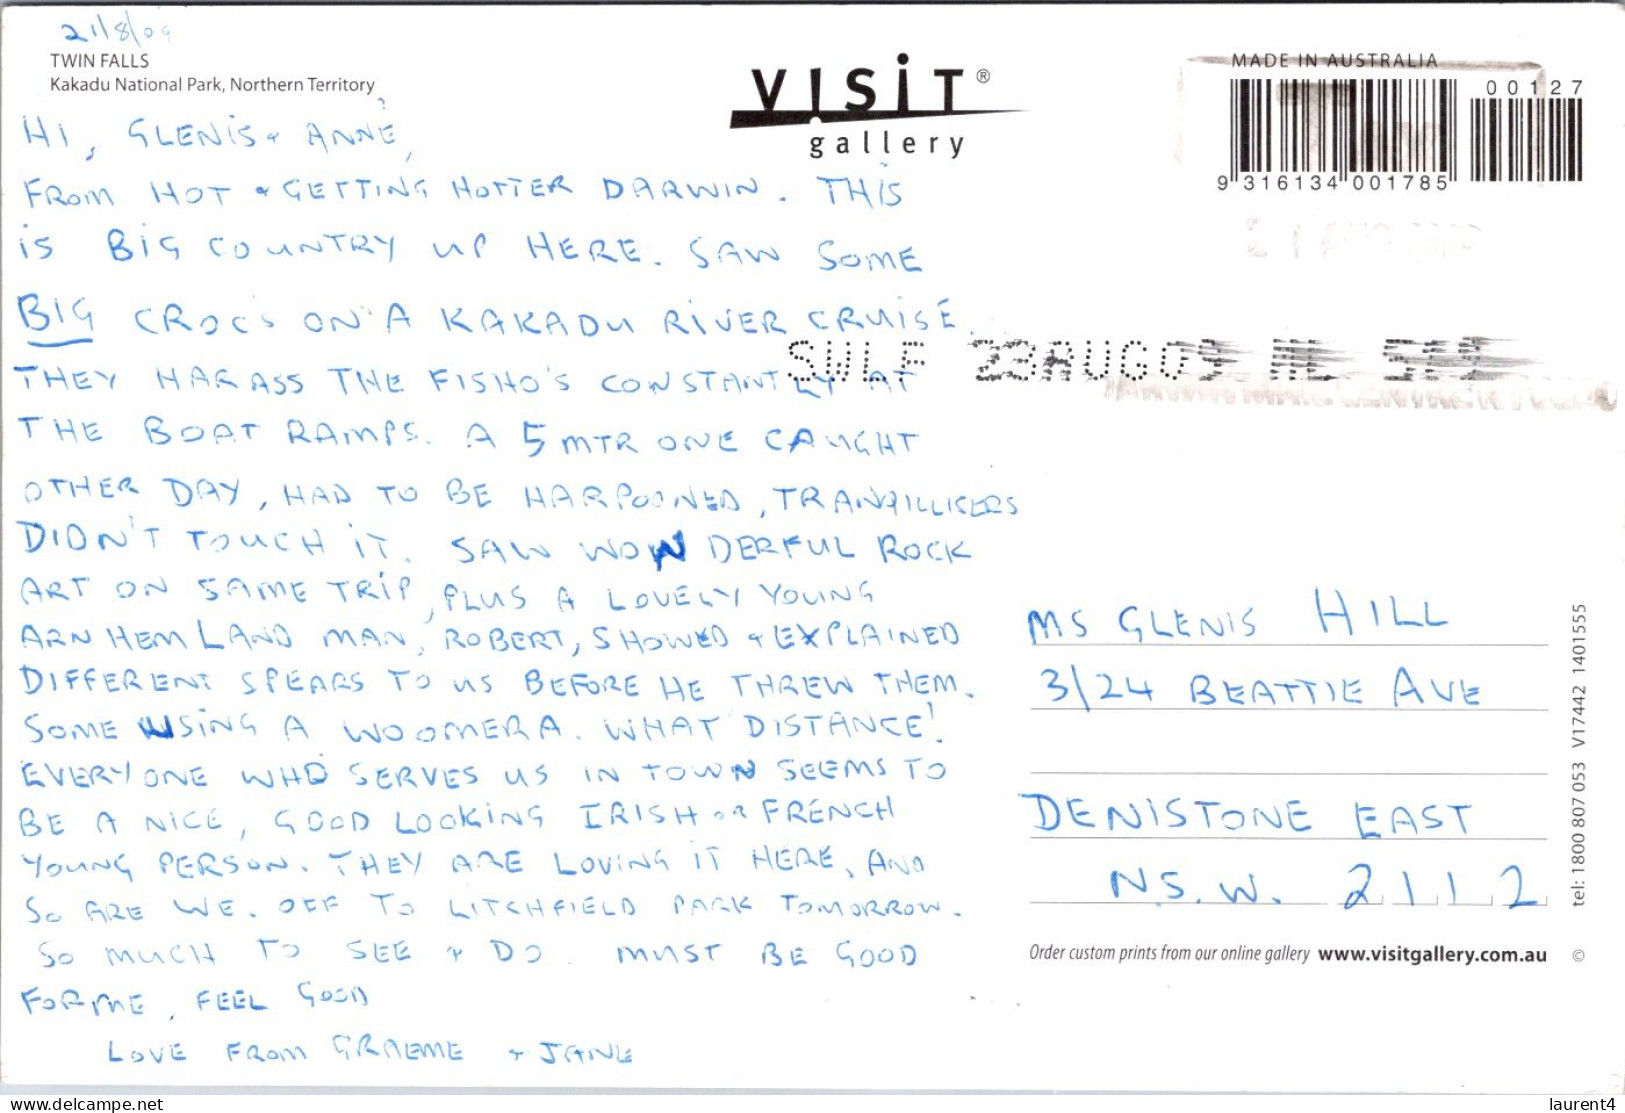 21/8/09
TWIN FALLS
Kakadu National Park, Northern Territory
VISIT®
gallery
MADE IN AUSTRALIA
00127
9 316134 001785
HI, GLENIS & ANNE,
FROM HOT & GETTING HOTTER DARWIN. THIS
IS BIG COUNTRY UP HERE. SAW SOME
BIG CROCS ON A KAKADU RIVER CRUISE.
THEY HARASS THE FISHO'S CONSTANTLY AT
THE BOAT RAMPS. A 5 MTR ONE CAUGHT
OTHER DAY, HAD TO BE HARPOONED, TRANQILLISERS
DIDN'T TOUCH IT. SAW WONDERFUL ROCK
ART ON SAME TRIP, PLUS A LOVELY YOUNG
ARNHEM LAND MAN, ROBERT, SHOWED & EXPLAINED
DIFFERENT SPEARS TO US BEFORE HE THREW THEM.
SOME USING A WOOMERA. WHAT DISTANCE!
EVERYONE WHO SERVES US IN TOWN SEEMS TO
BE A NICE, GOOD LOOKING IRISH OR FRENCH
YOUNG PERSON. THEY ARE LOVING IT HERE, AND
SO ARE WE. OFF TO LITCHFIELD PARK TOMORROW.
SO MUCH TO SEE & DO. MUST BE GOOD
FOR ME, FEEL GOOD
LOVE FROM GRAEME & JANE
SWLF 23AUG09
MS GLENIS HILL
3/24 BEATTIE AVE
DENISTONE EAST
N.S.W. 2112
Order custom prints from our online gallery www.visitgallery.com.au ©
tel: 1800 807 053 V17442 1401555
www.delcampe.net
laurent4